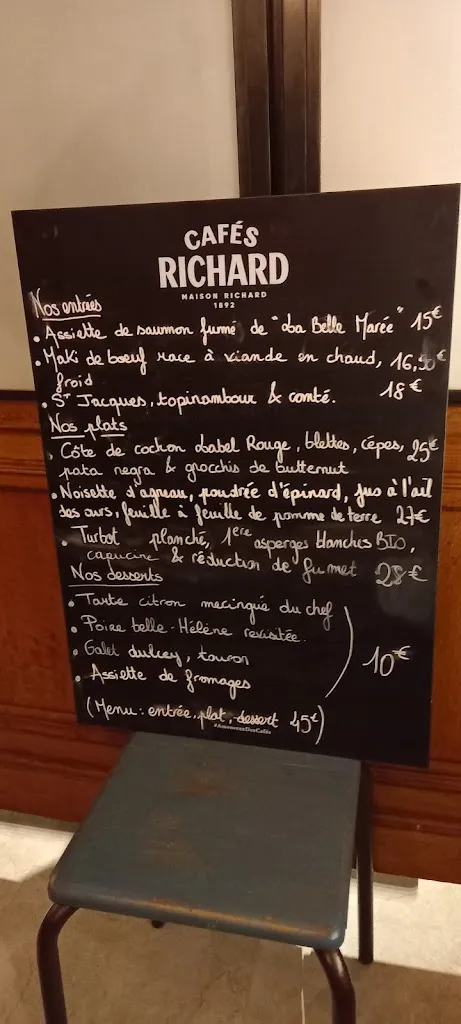 CAFÉS
RICHARD
MAISON RICHARD
1892
Nos entrées
• Assiette de saumon fumé de "La Belle Marée" 15€
• Maki de boeuf race à viande en chaud, 16,50€
froid
• St Jacques, topinambour & comté. 18€
Nos plats
• Côte de cochon Label Rouge, blettes, cèpes, 25€
pata negra & gnocchis de butternut
• Noisette d'agneau, poudrée d'épinard, jus à l'ail
des ours, feuille à feuille de pomme de terre 27€
• Turbot planché, 1ère asperges blanches BIO,
capucine & réduction de fumet 28€
Nos desserts
• Tarte citron meringué du chef
• Poire belle-Hélène revisitée.
• Galet dulcey, touron
• Assiette de fromages
10€
(Menu: entrée, plat, dessert 45€)
#AmoureuxDesCafés